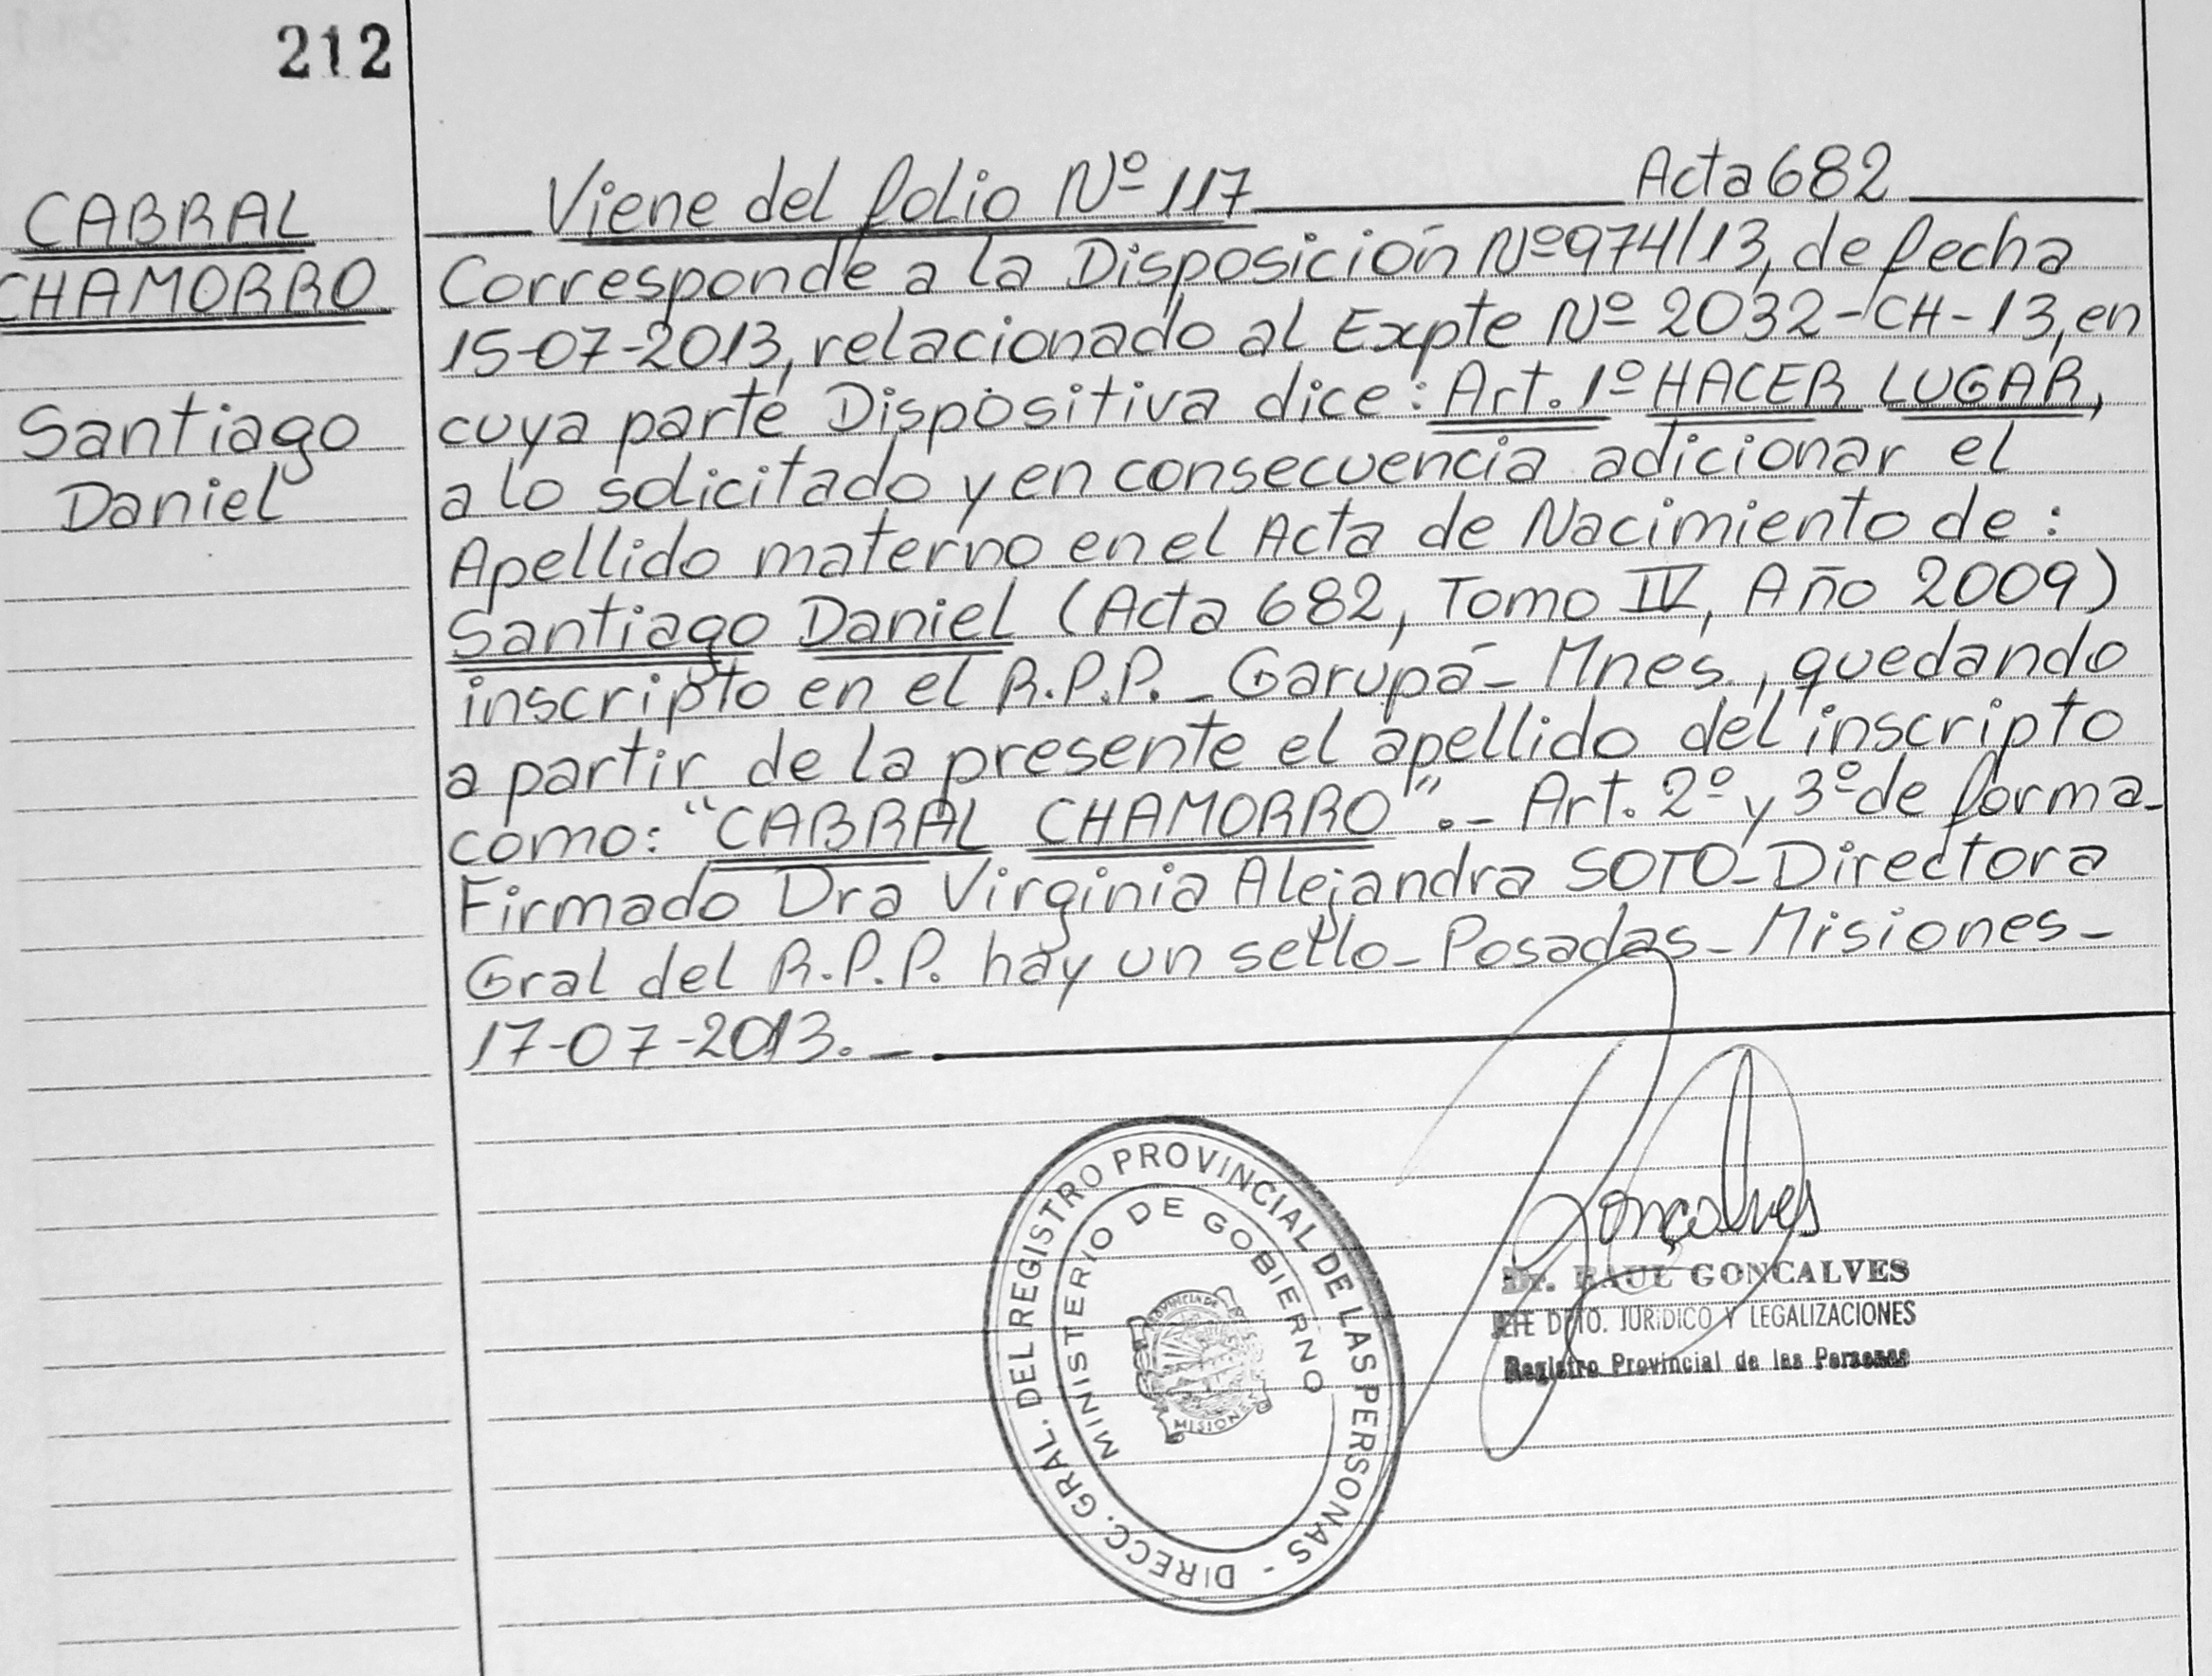 212
CABRAL
CHAMORRO
Santiago
Daniel
Viene del folio Nº 117 Acta 682
Corresponde a la Disposición Nº 974/13, de fecha
15-07-2013, relacionado al Expte Nº 2032-CH-13, en
cuya parte Dispositiva dice: Art. 1º HACER LUGAR,
a lo solicitado y en consecuencia adicionar el
Apellido materno en el Acta de Nacimiento de:
Santiago Daniel (Acta 682, Tomo IV, Año 2009)
inscripto en el R.P.P. - Garupá - Mnes., quedando
a partir de la presente el apellido del inscripto
como: "CABRAL CHAMORRO".- Art. 2º y 3º de forma-
Firmado Dra Virginia Alejandra SOTO-Directora
Gral del R.P.P. hay un sello-Posadas-Misiones-
17-07-2013.-
DIRECC. GRAL. DEL REGISTRO PROVINCIAL DE LAS PERSONAS -
MINISTERIO DE GOBIERNO
PROVINCIA DE
MISIONES
Gonçalves
Dr. RAUL GONCALVES
JEFE DPTO. JURIDICO Y LEGALIZACIONES
Registro Provincial de las Personas